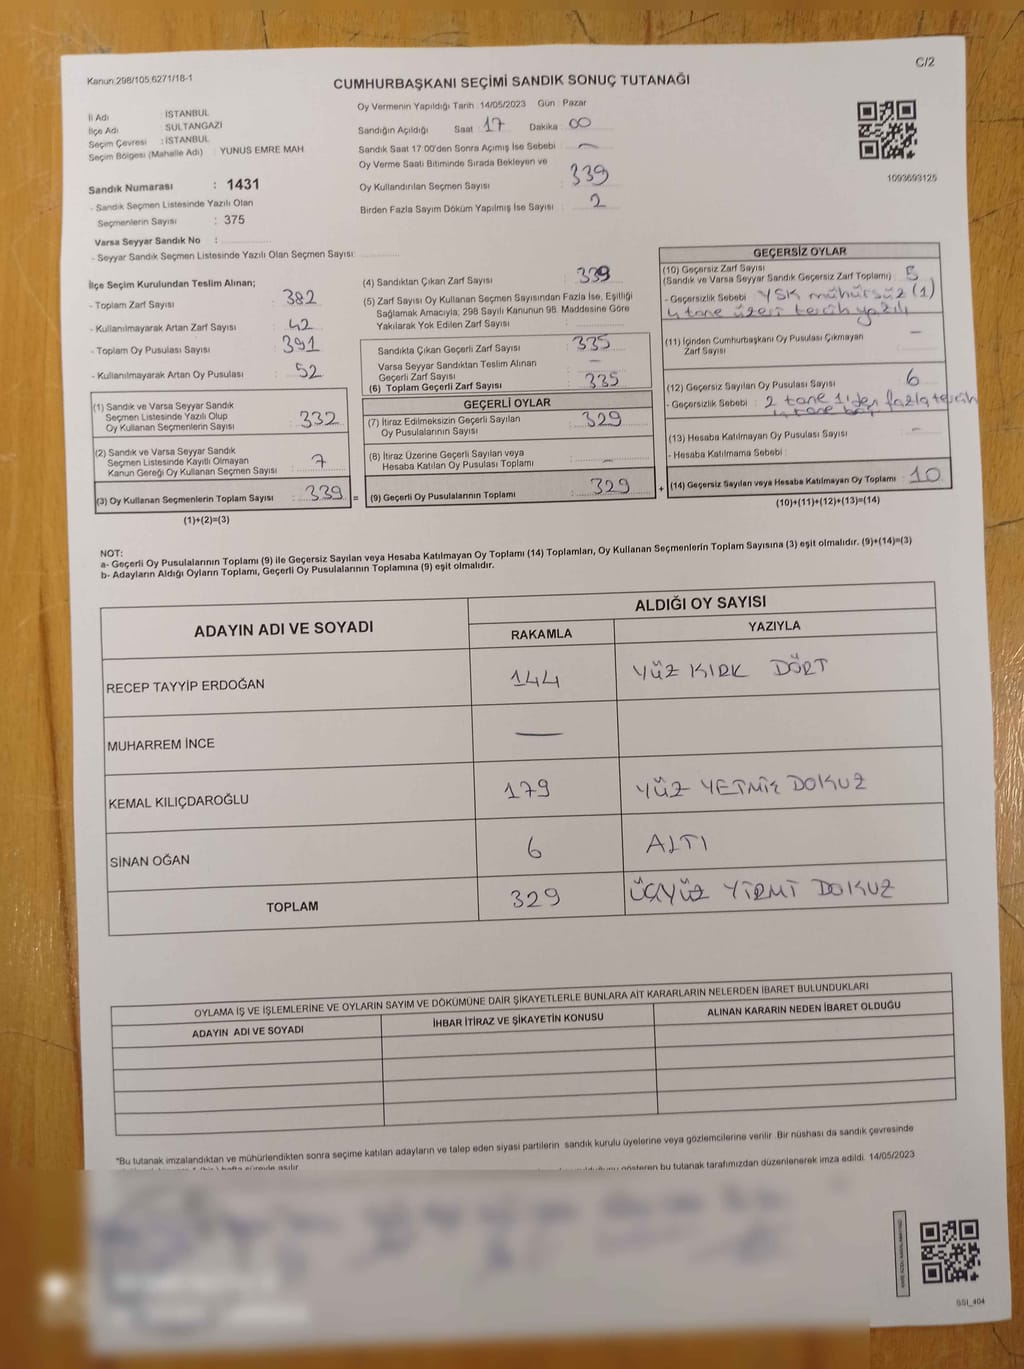 Kanun:298/105,6271/18-1
C/2
CUMHURBAŞKANI SEÇİMİ SANDIK SONUÇ TUTANAĞI
İl Adı : İSTANBUL
İlçe Adı : SULTANGAZİ
Seçim Çevresi : İSTANBUL
Seçim Bölgesi (Mahalle Adı) : YUNUS EMRE MAH
Sandık Numarası : 1431
- Sandık Seçmen Listesinde Yazılı Olan
Seçmenlerin Sayısı : 375
Varsa Seyyar Sandık No :
- Seyyar Sandık Seçmen Listesinde Yazılı Olan Seçmen Sayısı:
Oy Vermenin Yapıldığı Tarih :14/05/2023 Gün : Pazar
Sandığın Açıldığı Saat : 17 Dakika : 00
Sandık Saat 17:00'den Sonra Açımış İse Sebebi :
Oy Verme Saati Bitiminde Sırada Bekleyen ve
Oy Kullandırılan Seçmen Sayısı : 339
Birden Fazla Sayım Döküm Yapılmış İse Sayısı : 2
1093693125
İlçe Seçim Kurulundan Teslim Alınan;
- Toplam Zarf Sayısı : 382
- Kullanılmayarak Artan Zarf Sayısı : 42
- Toplam Oy Pusulası Sayısı : 391
- Kullanılmayarak Artan Oy Pusulası : 52
(1) Sandık ve Varsa Seyyar Sandık
Seçmen Listesinde Yazılı Olup
Oy Kullanan Seçmenlerin Sayısı : 332
(2) Sandık ve Varsa Seyyar Sandık
Seçmen Listesinde Kayıtlı Olmayan
Kanun Gereği Oy Kullanan Seçmen Sayısı : 7
(3) Oy Kullanan Seçmenlerin Toplam Sayısı : 339 =
(1)+(2)=(3)
(4) Sandıktan Çıkan Zarf Sayısı : 339
(5) Zarf Sayısı Oy Kullanan Seçmen Sayısından Fazla İse, Eşitliği
Sağlamak Amacıyla; 298 Sayılı Kanunun 98. Maddesine Göre
Yakılarak Yok Edilen Zarf Sayısı :
Sandıkta Çıkan Geçerli Zarf Sayısı : 335
Varsa Seyyar Sandıktan Teslim Alınan
Geçerli Zarf Sayısı : —
(6) Toplam Geçerli Zarf Sayısı : 335
GEÇERLİ OYLAR
(7) İtiraz Edilmeksizin Geçerli Sayılan
Oy Pusulalarının Sayısı : 329
(8) İtiraz Üzerine Geçerli Sayılan veya
Hesaba Katılan Oy Pusulası Toplamı : —
(9) Geçerli Oy Pusulalarının Toplamı : 329 +
GEÇERSİZ OYLAR
(10) Geçersiz Zarf Sayısı
(Sandık ve Varsa Seyyar Sandık Geçersiz Zarf Toplamı) : 5
- Geçersizlik Sebebi : YSK mühürsüz (1)
4 tane üzeri tercih yazılı
(11) İçinden Cumhurbaşkanı Oy Pusulası Çıkmayan
Zarf Sayısı : —
(12) Geçersiz Sayılan Oy Pusulası Sayısı : 6
- Geçersizlik Sebebi : 2 tane 1'den fazla tercih
4 tane boş
(13) Hesaba Katılmayan Oy Pusulası Sayısı : -
- Hesaba Katılmama Sebebi :
(14) Geçersiz Sayılan veya Hesaba Katılmayan Oy Toplamı : 10
(10)+(11)+(12)+(13)=(14)
NOT:
a- Geçerli Oy Pusulalarının Toplamı (9) ile Geçersiz Sayılan veya Hesaba Katılmayan Oy Toplamı (14) Toplamları, Oy Kullanan Seçmenlerin Toplam Sayısına (3) eşit olmalıdır. (9)+(14)=(3)
b- Adayların Aldığı Oyların Toplamı, Geçerli Oy Pusulalarının Toplamına (9) eşit olmalıdır.
ADAYIN ADI VE SOYADI
ALDIĞI OY SAYISI
RAKAMLA YAZIYLA
RECEP TAYYİP ERDOĞAN 144 YÜZ KIRK DÖRT
MUHARREM İNCE —
KEMAL KILIÇDAROĞLU 179 YÜZ YETMİŞ DOKUZ
SİNAN OĞAN 6 ALTI
TOPLAM 329 ÜÇYÜZ YİRMİ DOKUZ
OYLAMA İŞ VE İŞLEMLERİNE VE OYLARIN SAYIM VE DÖKÜMÜNE DAİR ŞİKAYETLERLE BUNLARA AİT KARARLARIN NELERDEN İBARET BULUNDUKLARI
ADAYIN ADI VE SOYADI İHBAR İTİRAZ VE ŞİKAYETİN KONUSU ALINAN KARARIN NEDEN İBARET OLDUĞU
*Bu tutanak imzalandıktan ve mühürlendikten sonra seçime katılan adayların ve talep eden siyasi partilerin sandık kurulu üyelerine veya gözlemcilerine verilir. Bir nüshası da sandık çevresinde
gösteren bu tutanak tarafımızdan düzenlenerek imza edildi. 14/05/2023
SSI_404